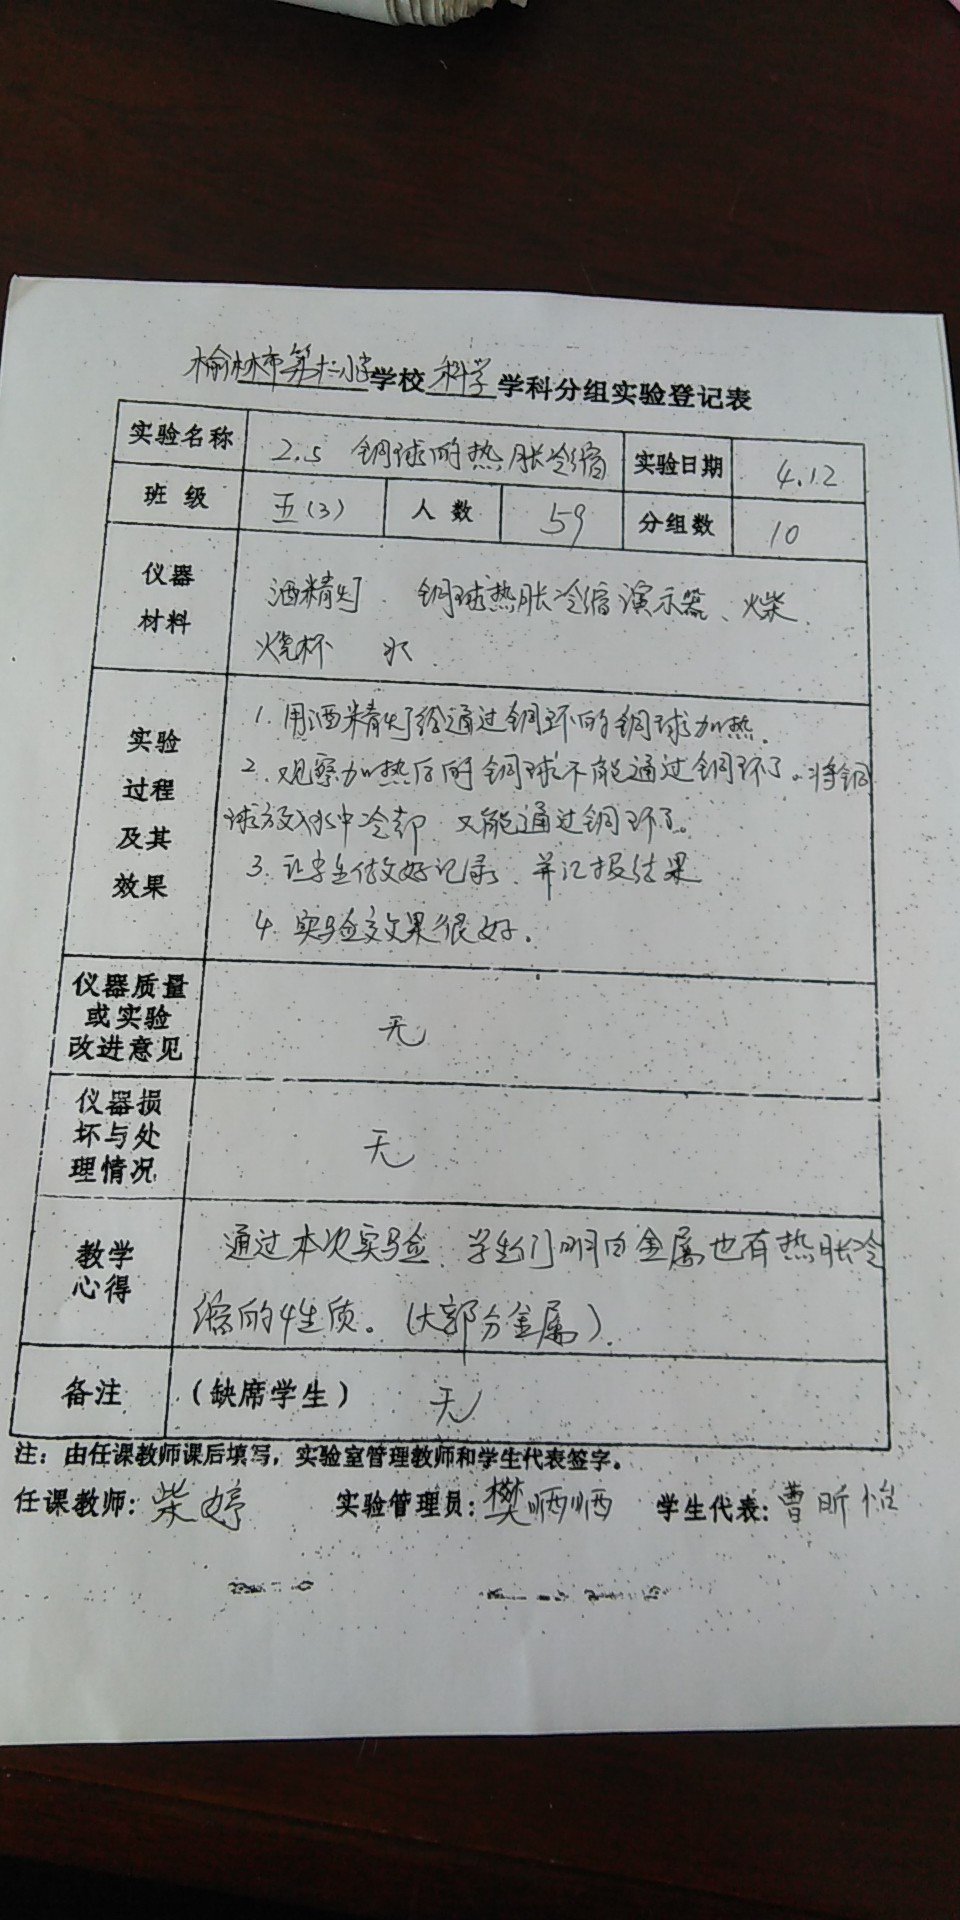 榆林市第十二小学学校科学学科分组实验登记表
实验名称 2.5 铜球的热胀冷缩 实验日期 4.12
班级 五(3) 人数 59 分组数 10
仪器
材料
酒精灯、铜球热胀冷缩演示器、火柴、
烧杯 水.
实验
过程
及其
效果
1. 用酒精灯给通过铜环的铜球加热.
2. 观察加热后的铜球不能通过铜环了。将铜
球放入水中冷却 又能通过铜环了。
3. 让学生做好记录、并汇报结果
4. 实验效果很好.
仪器质量
或实验
改进意见
无
仪器损
坏与处
理情况
无
教学
心得
通过本次实验、学生们明白金属也有热胀冷
缩的性质。(大部分金属).
备注 (缺席学生) 无
注:由任课教师课后填写,实验室管理教师和学生代表签字。
任课教师:柴婷 实验管理员:樊 学生代表:曹昕怡